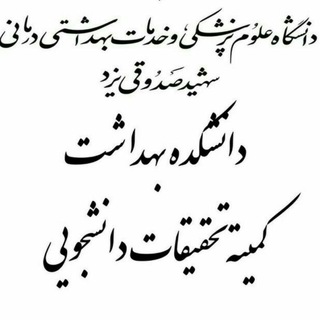 دانشگاه علوم پزشکی و خدمات بهداشتی درمانی
شهید صدوقی یزد
دانشکده بهداشت
کمیته تحقیقات دانشجویی